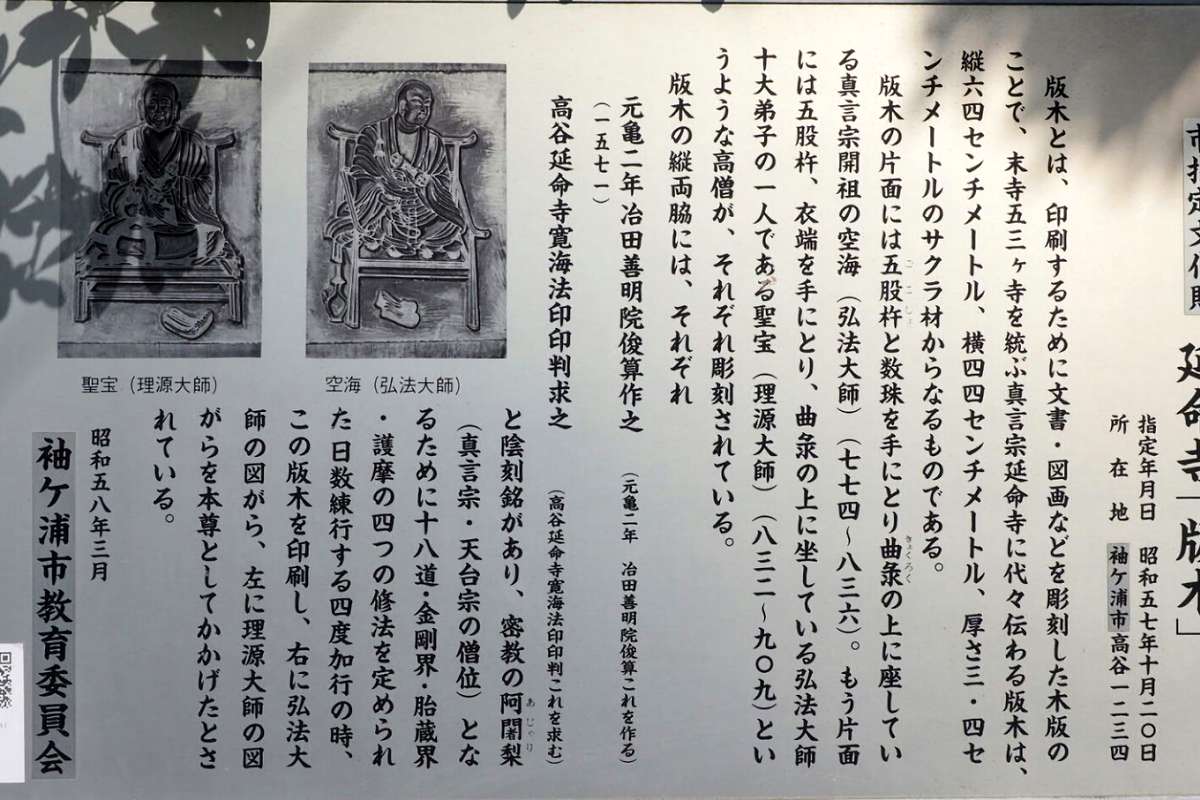 市指定文化財 延命寺「版木」
指定年月日 昭和五七年十月二〇日
所在地 袖ケ浦市高谷一二三四
版木とは、印刷するために文書・図画などを彫刻した木版の
ことで、末寺五三ヶ寺を統ぶ真言宗延命寺に代々伝わる版木は、
縦六四センチメートル、横四四センチメートル、厚さ三・四セ
ンチメートルのサクラ材からなるものである。
版木の片面には五股杵と数珠を手にとり曲彔の上に座してい
ごこしょ
きょくろく
る真言宗開祖の空海（弘法大師）（七七四～八三六）。もう片面
には五股杵、衣端を手にとり、曲彔の上に坐している弘法大師
十大弟子の一人である聖宝（理源大師）（八三二～九〇九）とい
うような高僧が、それぞれ彫刻されている。
版木の縦両脇には、それぞれ
元亀二年 冶田善明院俊算作之
（元亀二年 冶田善明院俊算これを作る）
（一五七一）
高谷延命寺寛海法印印判求之
（高谷延命寺寛海法印印判これを求む）
と陰刻銘があり、密教の阿闍梨
あじゃり
（真言宗・天台宗の僧位）とな
るために十八道・金剛界・胎蔵界
・護摩の四つの修法を定められ
た日数練行する四度加行の時、
この版木を印刷し、右に弘法大
師の図がら、左に理源大師の図
がらを本尊としてかかげたとさ
れている。
空海（弘法大師）
聖宝（理源大師）
昭和五八年三月
袖ケ浦市教育委員会